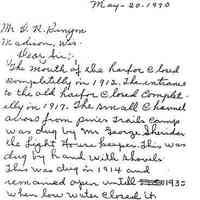 May-20-1970
Mr D. N. Runyon
Madison, Wis.
Dear Sir:
The mouth of the harbor closed
completely in 1912. The entrance
to the old harbor closed complet-
elly in 1917. The small channel
across from pines Trails Camps
was dug by Mr George Sheridan
the Light House keeper. This was
dug by hand with shovels.
This was dug in 1914 and
remained open untill 1935
when low water closed it.